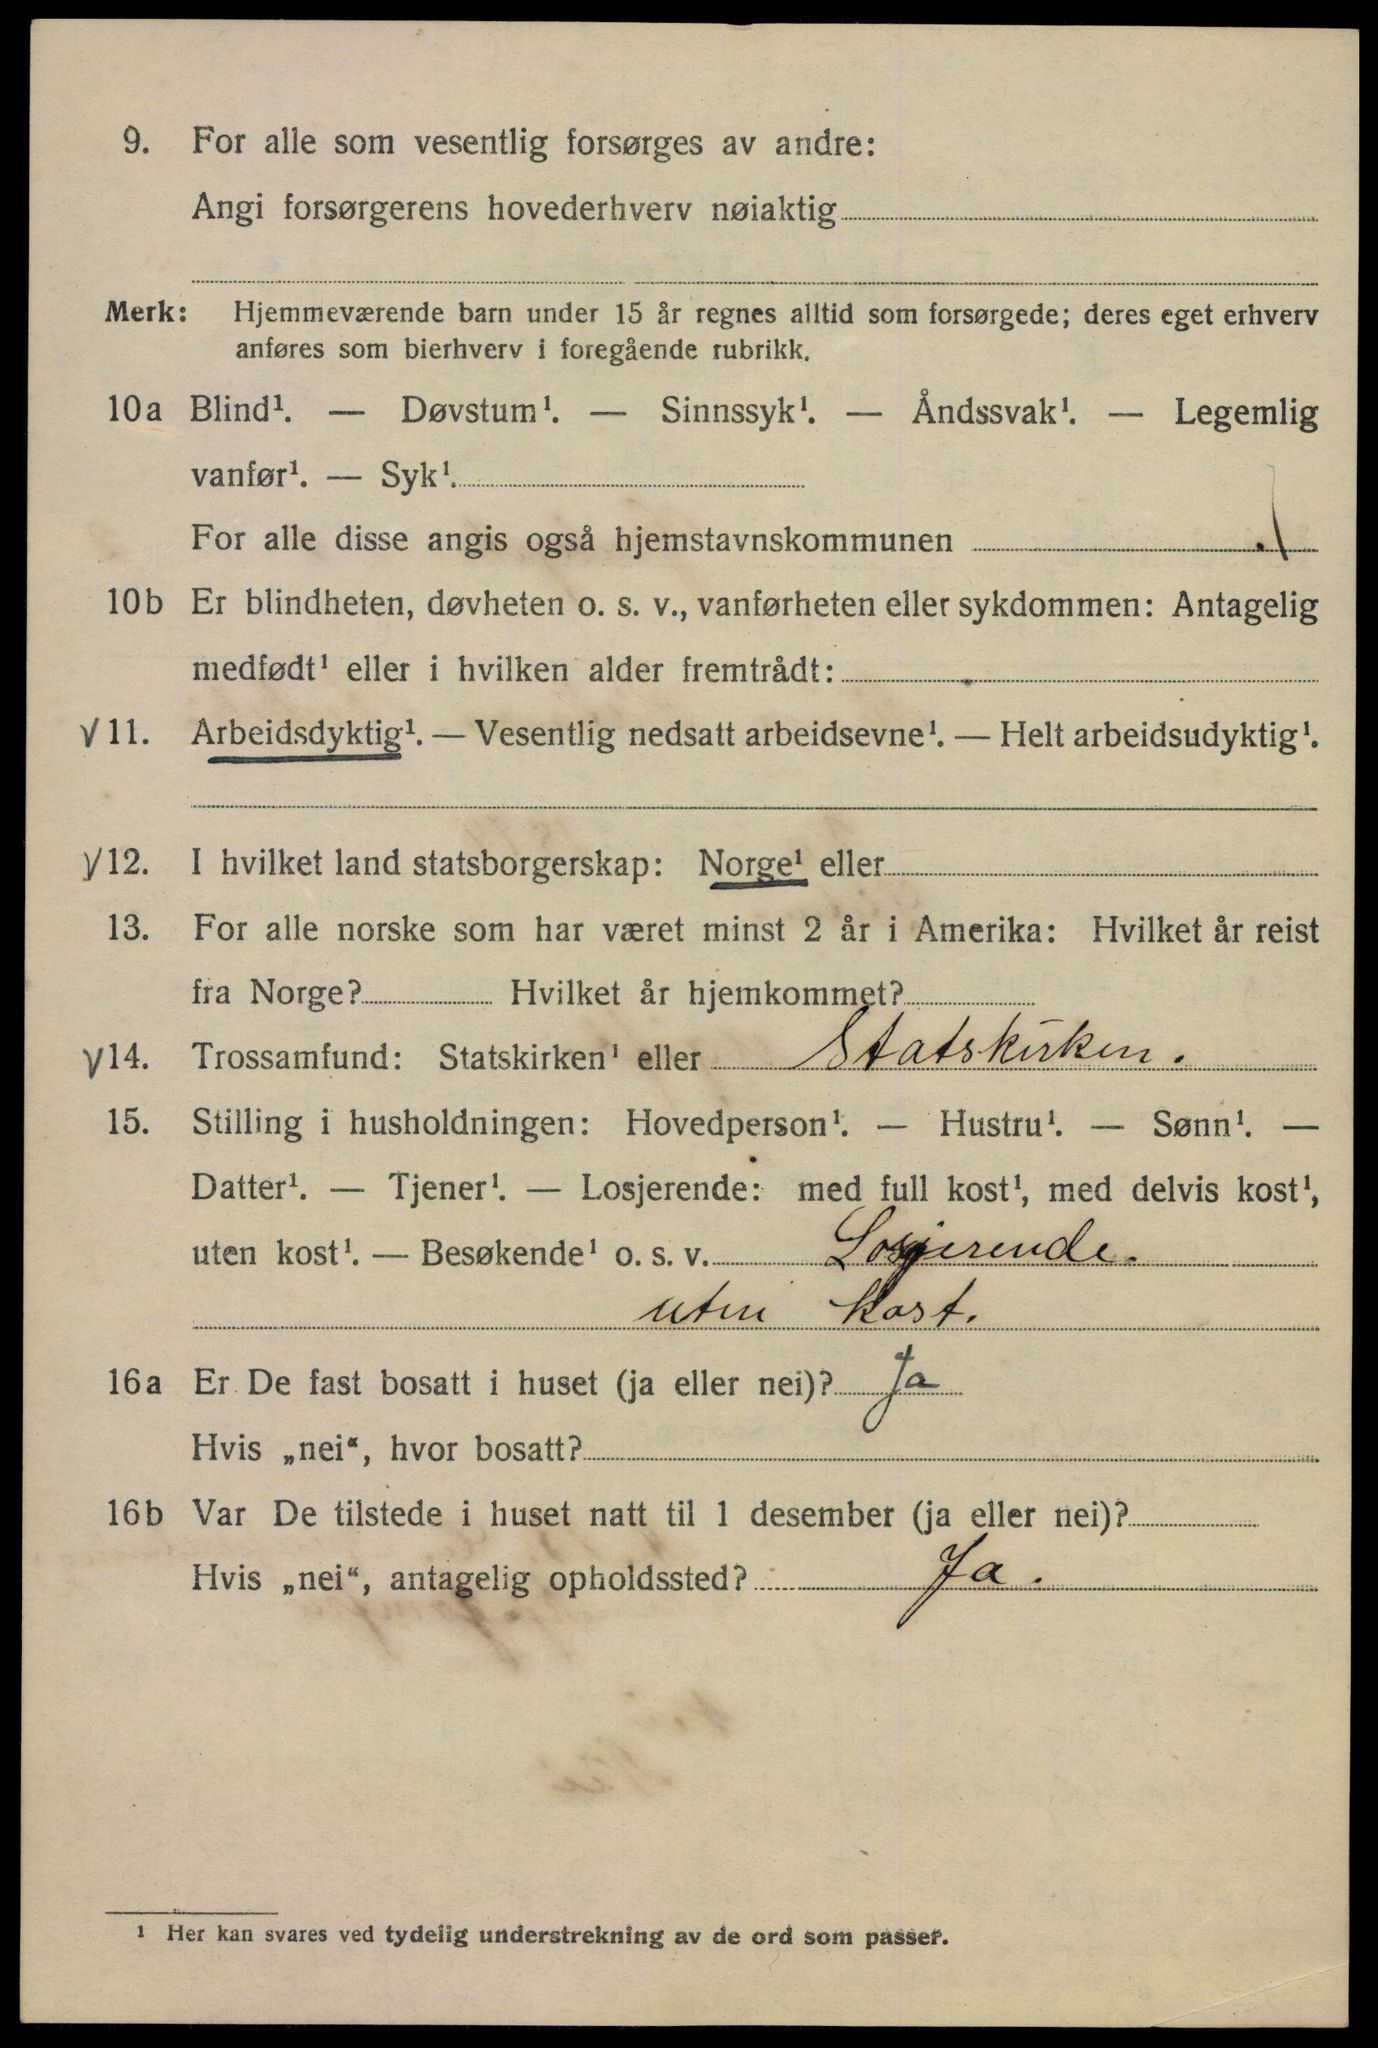 9. For alle som vesentlig forsørges av andre:
Angi forsørgerens hovederhverv nøiaktig
Merk: Hjemmeværende barn under 15 år regnes alltid som forsørgede; deres eget erhverv
anføres som bierhverv i foregående rubrikk.
10a Blind¹. — Døvstum¹. — Sinnssyk¹. — Åndssvak¹. — Legemlig
vanfør¹. — Syk¹.
For alle disse angis også hjemstavnskommunen
10b Er blindheten, døvheten o. s. v., vanførheten eller sykdommen: Antagelig
medfødt¹ eller i hvilken alder fremtrådt:
√ 11. Arbeidsdyktig¹. — Vesentlig nedsatt arbeidsevne¹. — Helt arbeidsudyktig¹.
√ 12. I hvilket land statsborgerskap: Norge¹ eller
13. For alle norske som har været minst 2 år i Amerika: Hvilket år reist
fra Norge? Hvilket år hjemkommet?
√ 14. Trossamfund: Statskirken¹ eller Statskirken.
15. Stilling i husholdningen: Hovedperson¹. — Hustru¹. — Sønn¹. —
Datter¹. — Tjener¹. — Losjerende: med full kost¹, med delvis kost¹,
uten kost¹. — Besøkende¹ o. s. v. Losjerende.
uten kost.
16a Er De fast bosatt i huset (ja eller nei)? Ja
Hvis „nei“, hvor bosatt?
16b Var De tilstede i huset natt til 1 desember (ja eller nei)?
Hvis „nei“, antagelig opholdssted? Ja.
¹ Her kan svares ved tydelig understrekning av de ord som passer.